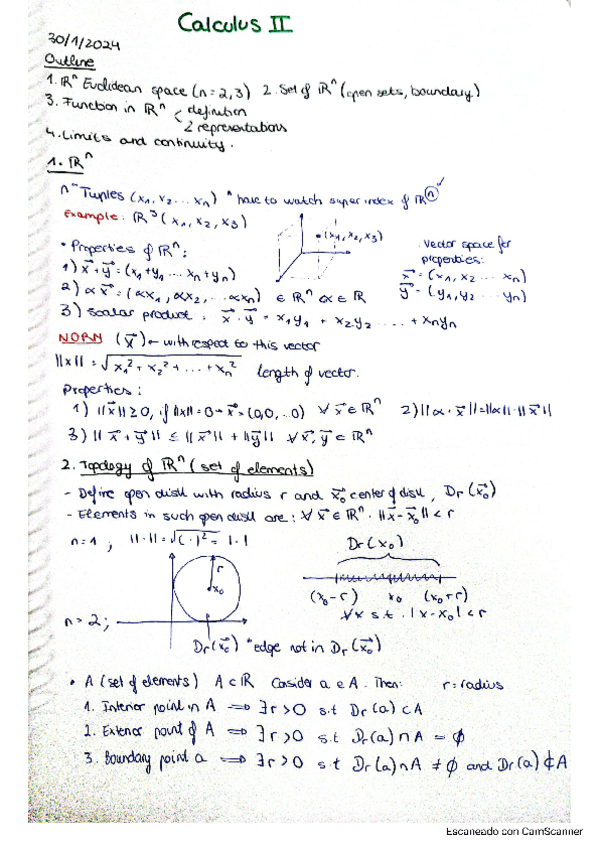 Calculus II
30/1/2024
Outline
1. ℝⁿ Euclidean space (n=2,3) 2. Set of ℝⁿ (open sets, boundary)
3. Function in ℝⁿ < definition
2 representations
4. Limits and continuity.
1. ℝⁿ
n-Tuples (x₁, x₂ ... xₙ) * have to watch super index of ℝⁿ ✓
Example: ℝ³ (x₁, x₂, x₃)
• (x₁, x₂, x₃)
• Properties of ℝⁿ:
vector space for
properties:
1) x⃗+y⃗ = (x₁+y₁ ... xₙ+yₙ)
x⃗ = (x₁, x₂ ... xₙ)
2) αx⃗ = (αx₁, αx₂, ... αxₙ) ∈ ℝⁿ α ∈ ℝ
y⃗ = (y₁, y₂ ... yₙ)
3) scalar product: x⃗·y⃗ = x₁y₁ + x₂y₂ .... + xₙyₙ
NORM (x⃗) ← with respect to this vector
||x|| = √(x₁² + x₂² + ... + xₙ²) length of vector.
Properties:
1) ||x⃗|| ≥ 0, if ||x|| = 0 → x⃗ = (0,0,..0) ∀ x⃗ ∈ ℝⁿ 2) ||α·x⃗|| = ||α||·||x⃗||
3) ||x⃗ + y⃗|| ≤ ||x⃗|| + ||y⃗|| ∀ x⃗, y⃗ ∈ ℝⁿ
2. Topology of ℝⁿ (set of elements)
- Define open disk with radius r and x⃗₀ center of disk, Dr(x⃗₀)
- Elements in such open disk are: ∀ x⃗ ∈ ℝⁿ. ||x⃗ - x⃗₀|| < r
n=1; ||·|| = √(·)² = |·|
Dr(x₀)
r
x₀
(x₀-r) x₀ (x₀+r)
∀x s.t. |x-x₀| < r
n=2;
Dr(x⃗₀) *edge not in Dr(x⃗₀)
• A (set of elements) A⊂ℝ Consider a ∈ A. Then: r = radius
1. Interior point in A ⟹ ∃r>0 s.t Dr(a) ⊂ A
2. Exterior point of A ⟹ ∃r>0 s.t Dr(a) ∩ A = ∅
3. Boundary point a ⟹ ∃r>0 s.t Dr(a) ∩ A ≠ ∅ and Dr(a) ⊄ A
Escaneado con CamScanner